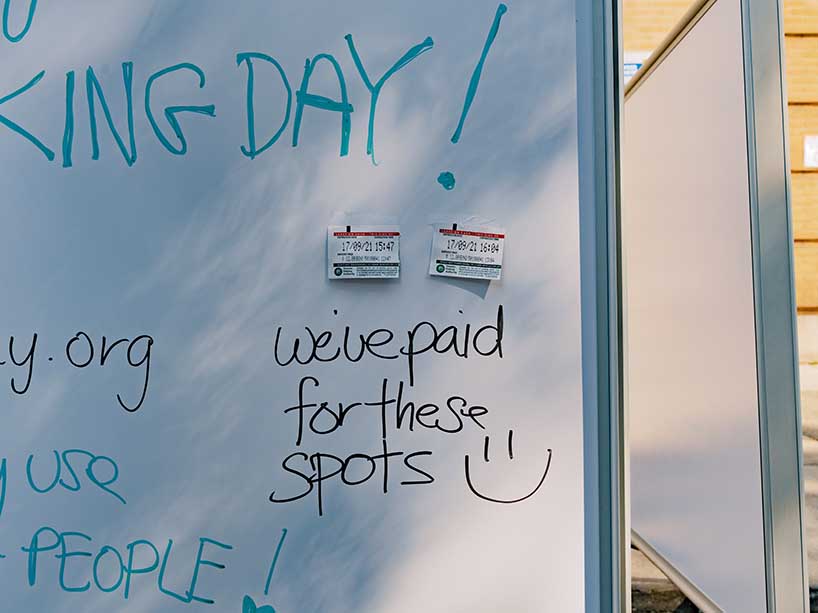 KING DAY!
17/09/21 15:47
17/09/21 16:04
y.org
we've paid
for these
spots
y use
PEOPLE!